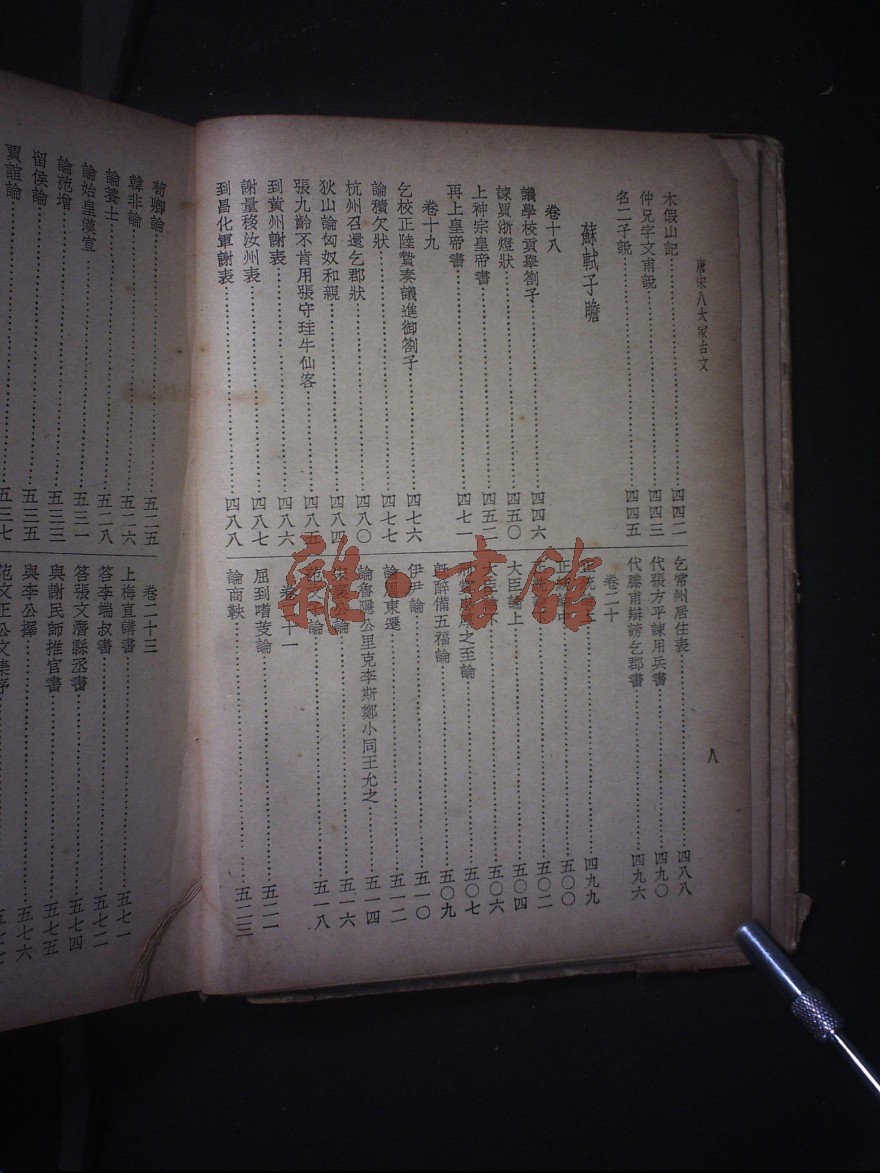 唐宋八大家古文
八
木假山記 四四二
仲兄字文甫說 四四三
名二子說 四四五
蘇軾子瞻
卷十八
議學校貢舉劄子 四四六
諫買浙燈狀 四五〇
上神宗皇帝書 四五二
再上皇帝書 四七一
卷十九
乞校正陸贄奏議進御劄子 四七六
論積欠狀 四七七
杭州召還乞郡狀 四八〇
狄山論匈奴和親 四八四
張九齡不肯用張守珪牛仙客 四八五
到黃州謝表 四八六
謝量移汝州表 四八七
到昌化軍謝表 四八八
乞常州居住表 四八八
代張方平諫用兵書 四九〇
代滕甫辯謗乞郡書 四九六
卷二十
四九九
五〇〇
五〇二
大臣論上 五〇四
五〇六
之至論 五〇七
既醉備五福論 五〇九
伊尹論 五一〇
論周東遷 五一二
論魯隱公里克李斯鄭小同王允之 五一四
公論 五一六
論 五一八
卷二十一
屈到嗜芰論 五二一
論商鞅 五二三
荀卿論 五二五
韓非論 五二六
論養士 五二八
論始皇漢宣 五三一
論范增 五三三
留侯論 五三五
賈誼論 五三七
卷二十三
上梅直講書 五七一
答李端叔書 五七二
答張文潛縣丞書 五七四
與謝民師推官書 五七五
與李公擇 五七六
范文正公文集序
雜·書館